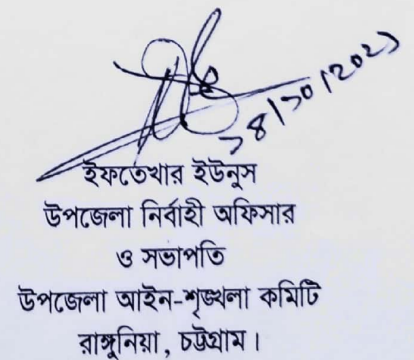 ১৪/১০/২০২১
ইফতেখার ইউনুস
উপজেলা নির্বাহী অফিসার
ও সভাপতি
উপজেলা আইন-শৃঙ্খলা কমিটি
রাঙ্গুনিয়া, চট্টগ্রাম।